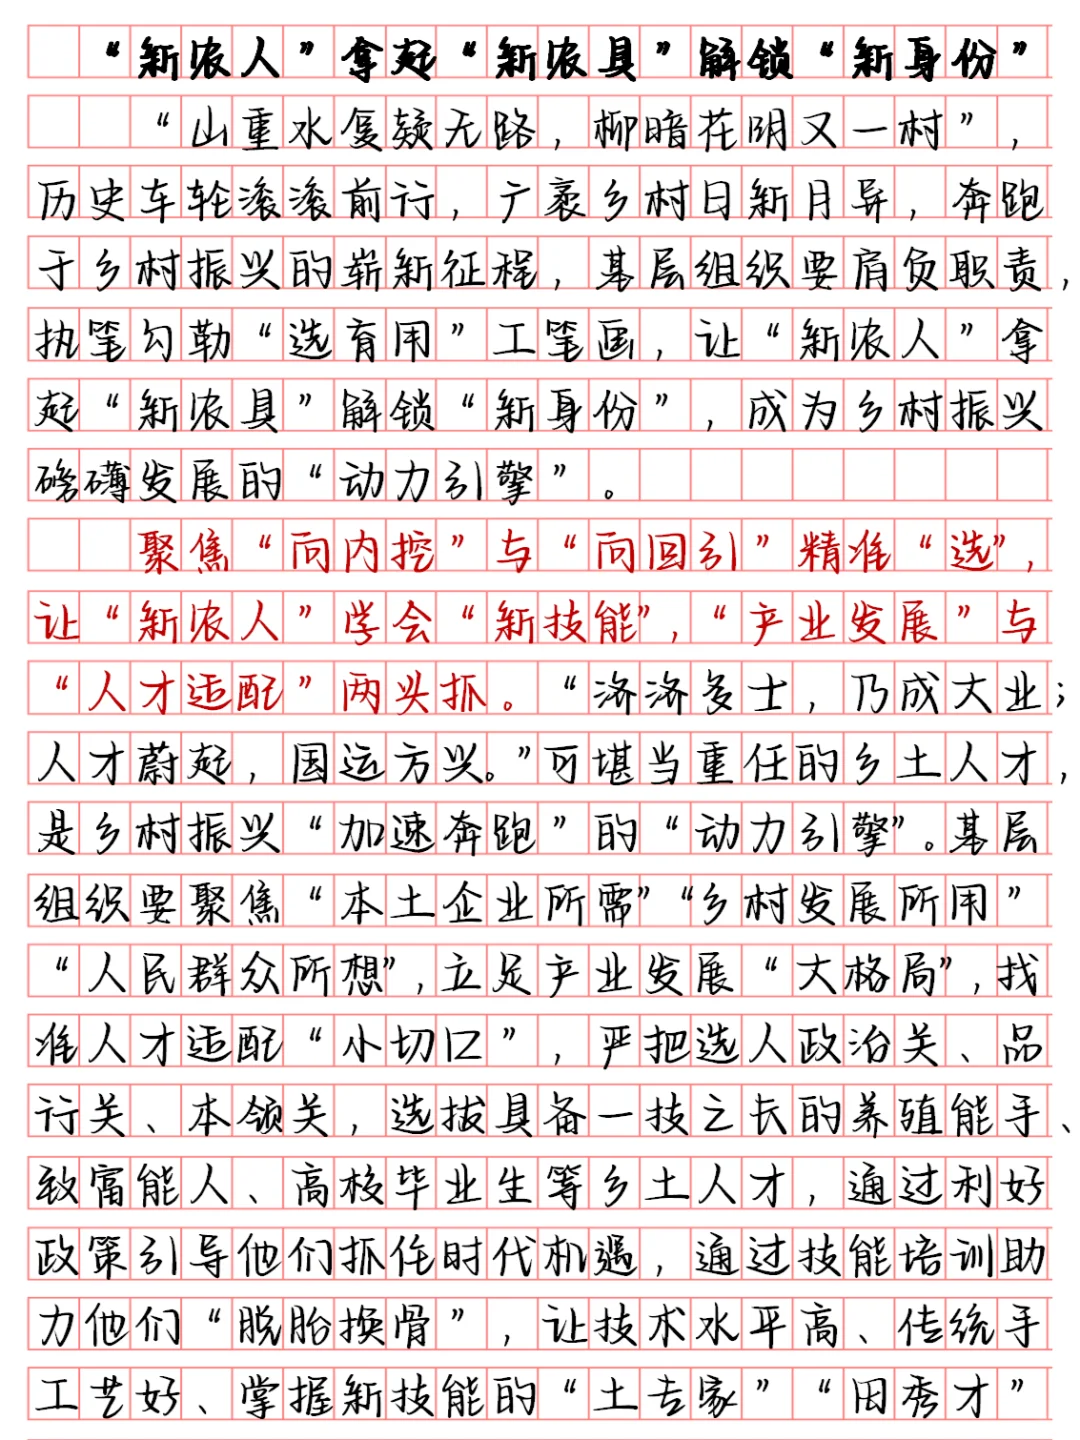 “新农人”拿起“新农具”解锁“新身份”
“山重水复疑无路，柳暗花明又一村”，
历史车轮滚滚前行，广袤乡村日新月异，奔跑
于乡村振兴的崭新征程，基层组织要肩负职责，
执笔勾勒“选育用”工笔画，让“新农人”拿
起“新农具”解锁“新身份”，成为乡村振兴
磅礴发展的“动力引擎”。
聚焦“向内挖”与“向回引”精准“选”，
让“新农人”学会“新技能”，“产业发展”与
“人才适配”两头抓。“济济多士，乃成大业；
人才蔚起，国运方兴。”可堪当重任的乡土人才，
是乡村振兴“加速奔跑”的“动力引擎”。基层
组织要聚焦“本土企业所需”“乡村发展所用”
“人民群众所想”，立足产业发展“大格局”，找
准人才适配“小切口”，严把选人政治关、品
行关、本领关，选拔具备一技之长的养殖能手、
致富能人、高校毕业生等乡土人才，通过利好
政策引导他们抓住时代机遇，通过技能培训助
力他们“脱胎换骨”，让技术水平高、传统手
工艺好、掌握新技能的“土专家”“田秀才”